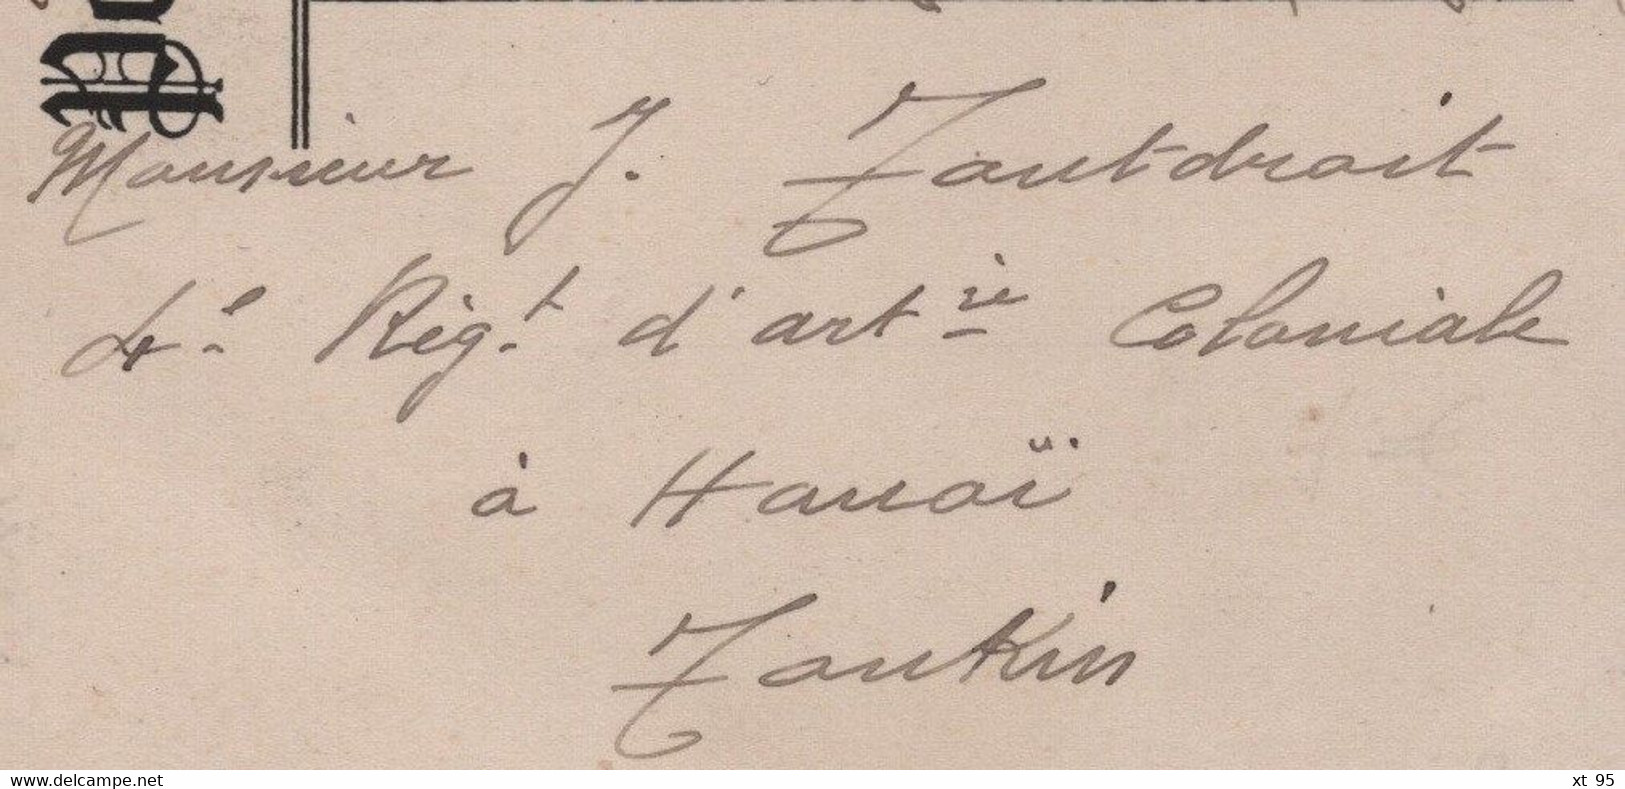 Monsieur J. Toutdroit
4e Règt d'artie Coloniale
à Hanoï
Tonkin
www.delcampe.net
xt_95